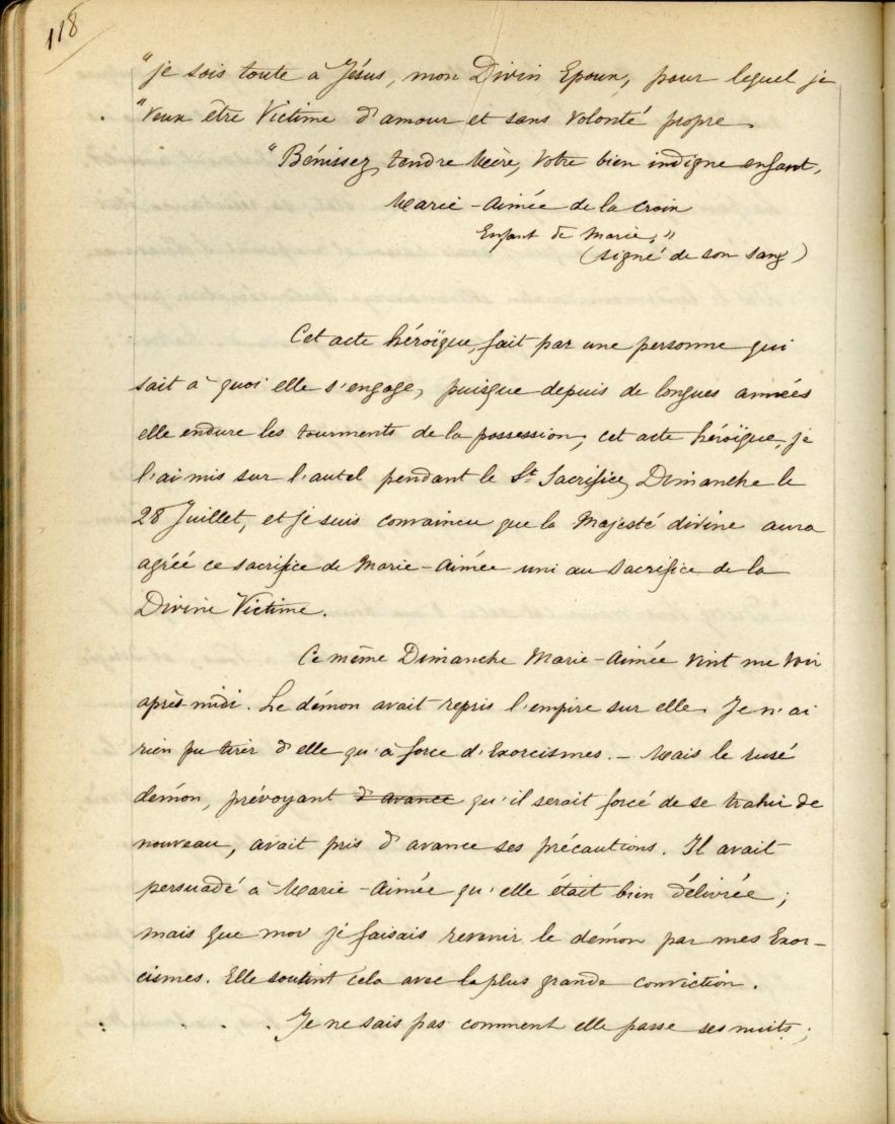 118
"je sois toute à Jésus, mon Divin Epoux, pour lequel je
"veux être Victime d'amour et sans volonté propre.
"Bénissez, tendre Mère, votre bien indigne enfant,
Marie-Aimée de la Croix
Enfant de Marie."
(signé de son sang)
Cet acte héroïque, fait par une personne qui
sait à quoi elle s'engage, puisque depuis de longues années
elle endure les tourments de la possession, cet acte héroïque, je
l'ai mis sur l'autel pendant le St Sacrifice, Dimanche le
28 Juillet, et je suis convaincu que la Majesté divine aura
agréé ce sacrifice de Marie-Aimée uni au Sacrifice de la
Divine Victime.
Ce même Dimanche Marie-Aimée vint me voir
après-midi. Le démon avait repris l'empire sur elle. Je n'ai
rien pu tirer d'elle qu'à force d'Exorcismes. – Mais le rusé
démon, prévoyant d'avance qu'il serait forcé de se trahir de
nouveau, avait pris d'avance ses précautions. Il avait
persuadé à Marie-Aimée qu'elle était bien délivrée ;
mais que moi je faisais revenir le démon par mes Exor-
cismes. Elle soutint cela avec la plus grande conviction.
Je ne sais pas comment elle passe ses nuits ;